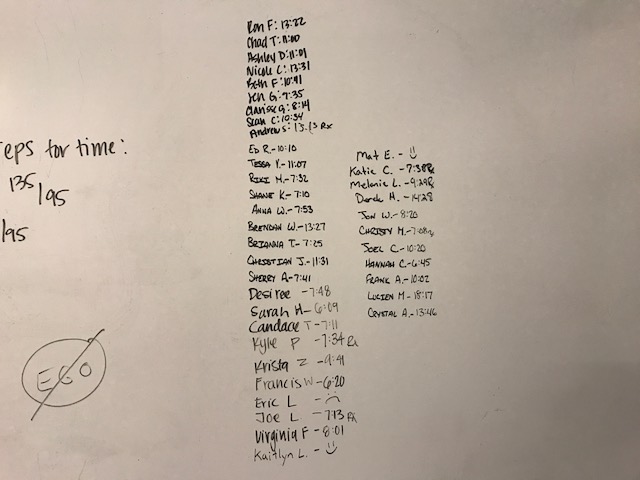 eps for time:
135/95
/95
EGO
Ron F: 13:22
Chad T: 11:00
Ashley D: 11:01
Nicole C: 13:31
Beth F: 10:41
Jen G: 9:35
Clarissa G: 8:14
Sean C: 10:34
Andrew S: 13:13 Rx
Ed R. - 10:10
Tessa V. - 11:07
Riki M. - 7:32
Shane K. - 7:10
Anna W. - 7:53
Brendan W. - 13:27
Brianna T - 7:25
Christian J. - 11:31
Sherry A - 7:41
Desiree - 7:48
Sarah H - 6:09
Candace T - 7:11
Kylie P - 7:34 Rx
Krista Z - 9:41
Francis W - 6:20
Eric L - ☹
Joe L - 7:13 Rx
Virginia F - 8:01
Kaitlyn L. - ☺
Mat E. - ☺
Katie C. - 7:38 Rx
Melanie L. - 9:29 Rx
Derek H. - 14:28
Jon W. - 8:20
Christy M. - 7:08 Rx
Joel C. - 10:20
Hannah C. - 6:45
Frank A. - 10:02
Lucien M - 18:17
Crystal A. - 13:46